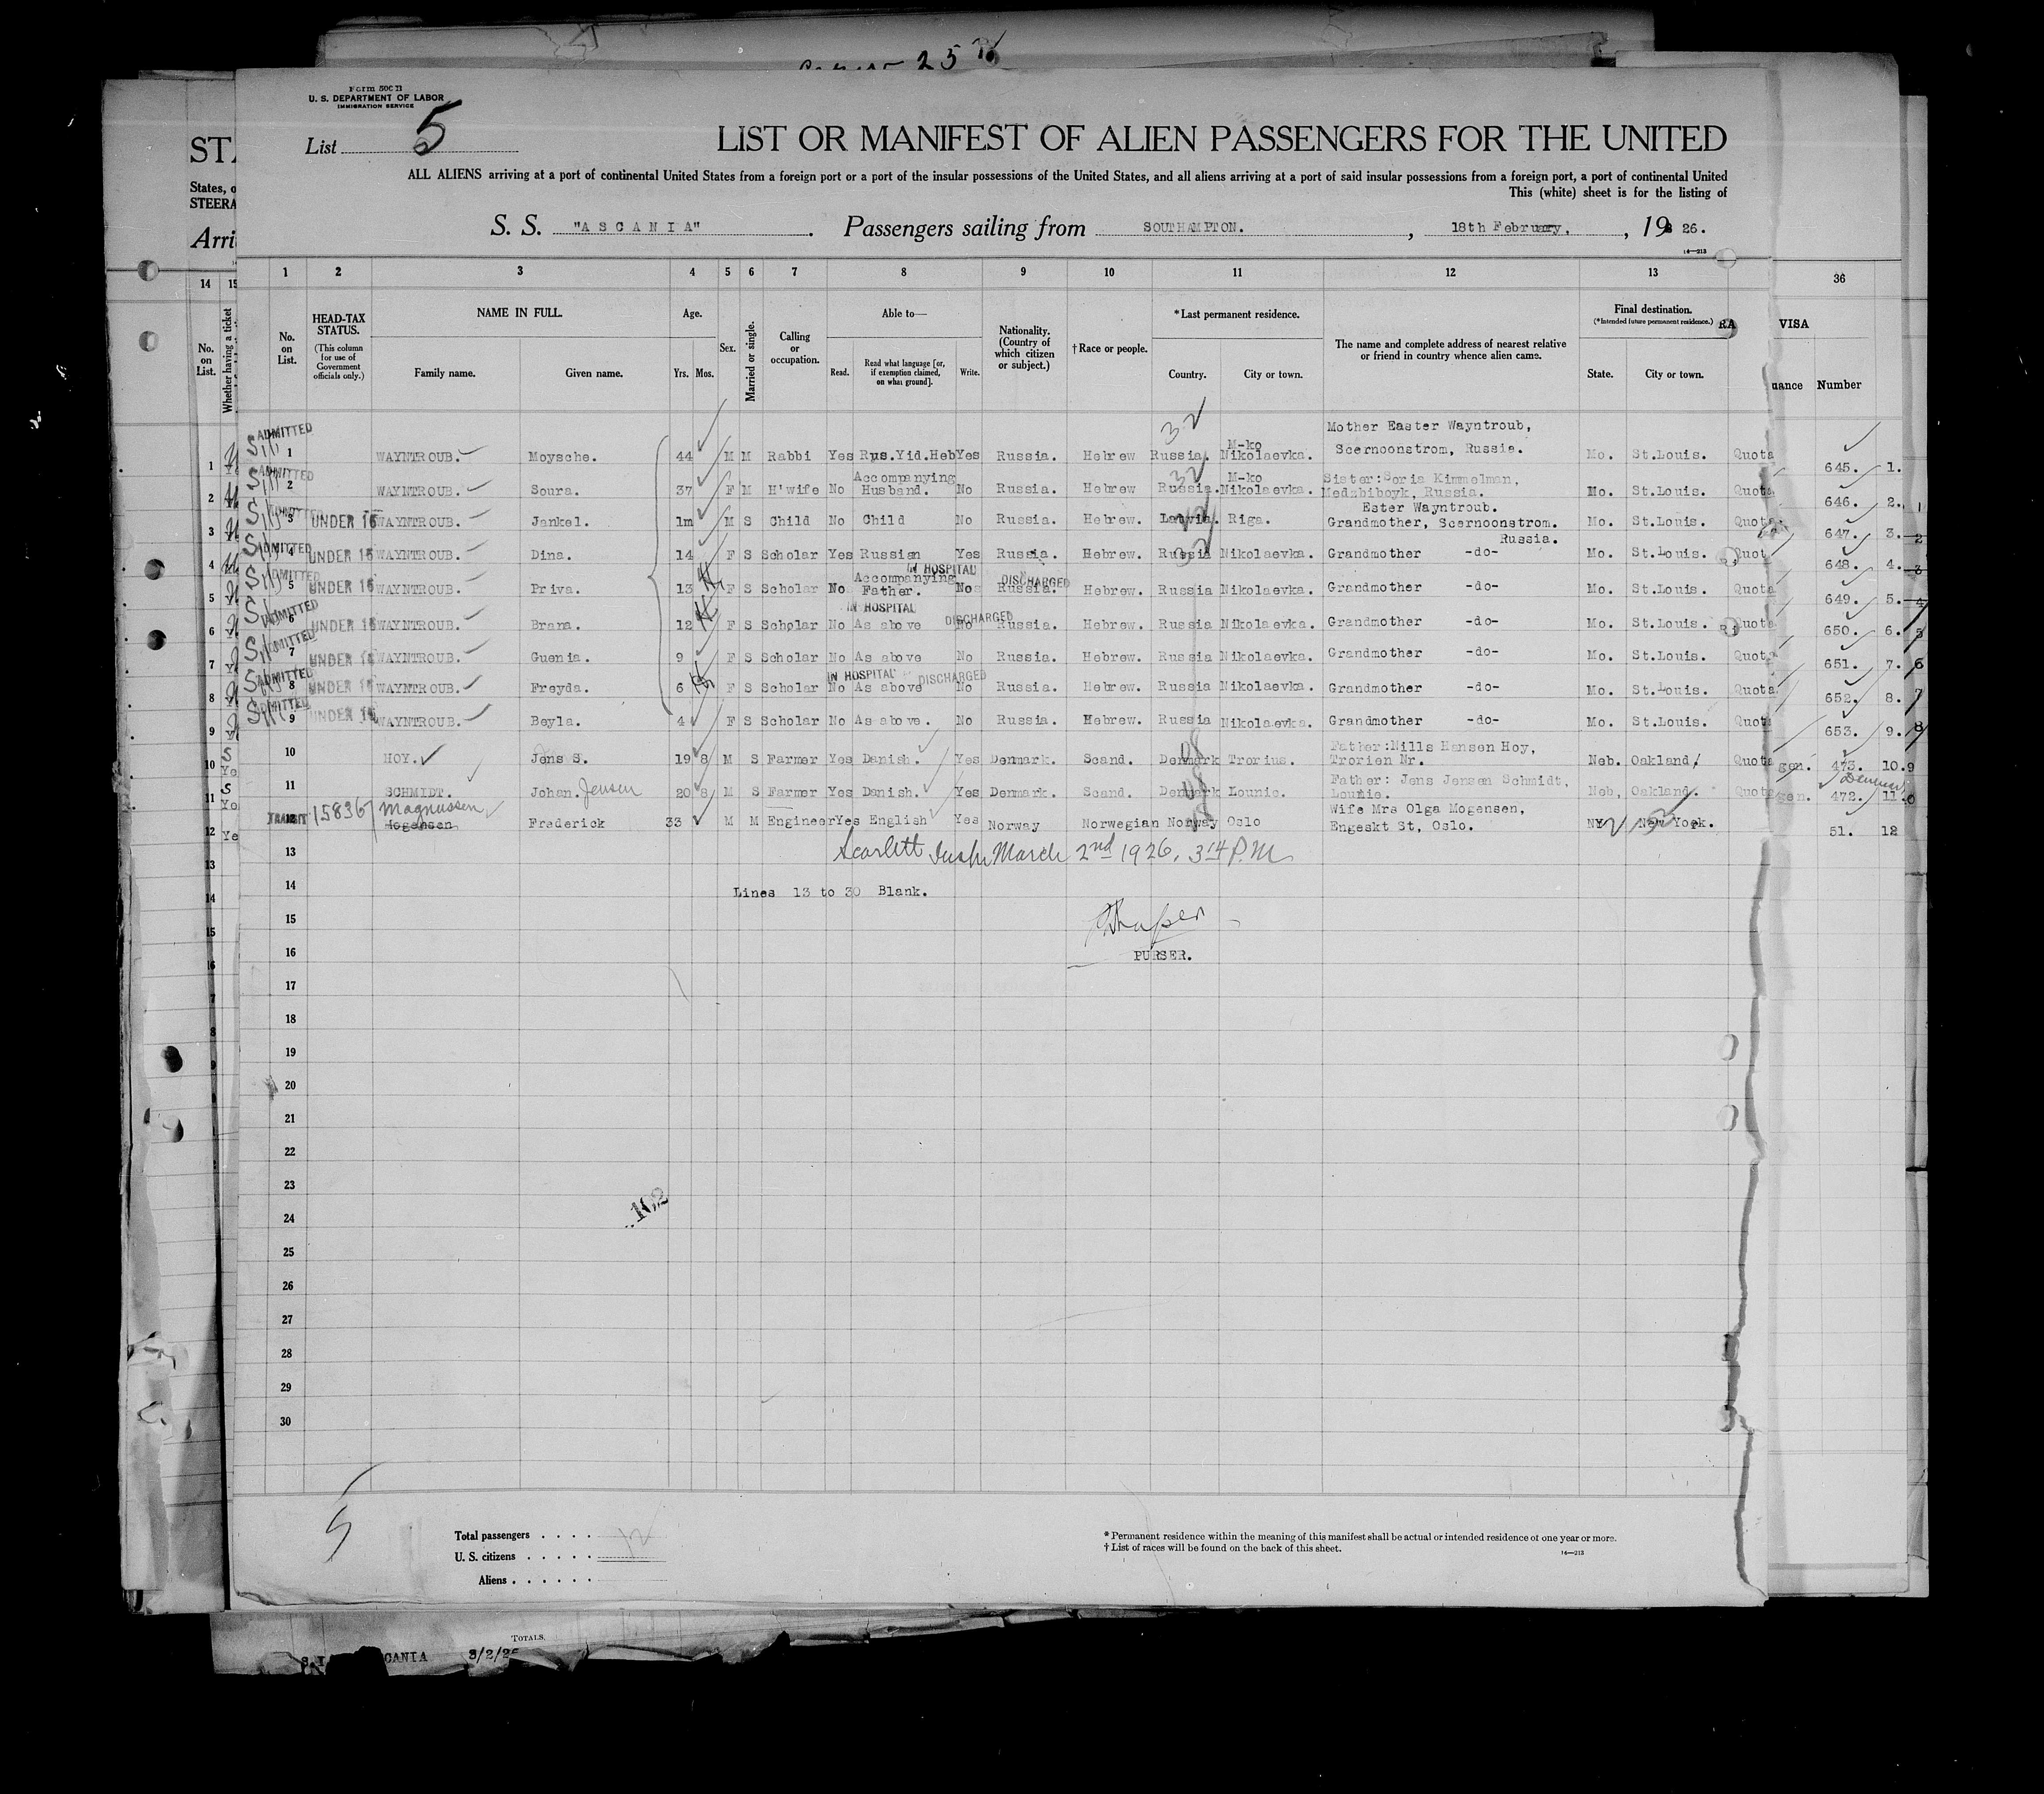 Form 500 B
U. S. DEPARTMENT OF LABOR
IMMIGRATION SERVICE
List 5
LIST OR MANIFEST OF ALIEN PASSENGERS FOR THE UNITED
ALL ALIENS arriving at a port of continental United States from a foreign port or a port of the insular possessions of the United States, and all aliens arriving at a port of said insular possessions from a foreign port, a port of continental United
This (white) sheet is for the listing of
S. S. "ASCANIA". Passengers sailing from SOUTHAMPTON. , 18th February, , 1926.
1 2 3 4 5 6 7 8 9 10 11 12 13
No. on List.
HEAD-TAX STATUS.
(This column for use of Government officials only.)
NAME IN FULL.
Family name. Given name.
Age.
Yrs. Mos.
Sex.
Married or single.
Calling or occupation.
Able to—
Read. Read what language [or, if exemption claimed, on what ground]. Write.
Nationality. (Country of which citizen or subject.)
†Race or people.
*Last permanent residence.
Country. City or town.
The name and complete address of nearest relative or friend in country whence alien came.
Final destination.
(*Intended future permanent residence.)
State. City or town.
ADMITTED 1 WAYNTROUB. Moysche. 44 M M Rabbi Yes Rus.Yid.Heb Yes Russia. Hebrew Russia. M-ko Nikolaevka. Mother Easter Wayntroub, Scernoonstrom, Russia. Mo. St.Louis. Quota 645. 1.
ADMITTED 2 WAYNTROUB. Soura. 37 F M H'wife No Accompanying Husband. No Russia. Hebrew Russia. M-ko Nikolaevka. Sister:Soria Kimmelman, Medzbiboyk, Russia. Mo. St.Louis. Quota 646. 2.
ADMITTED 3 UNDER 16 WAYNTROUB. Jankel. 1m M S Child No Child No Russia. Hebrew. Latvia. Riga. Ester Wayntroub. Grandmother, Scernoonstrom. Russia. Mo. St.Louis. Quota 647. 3.
ADMITTED 4 UNDER 16 WAYNTROUB. Dina. 14 F S Scholar Yes Russian Yes Russia. Hebrew. Russia Nikolaevka. Grandmother -do- Mo. St.Louis. Quot 648. 4.
ADMITTED 5 UNDER 16 WAYNTROUB. Priva. 13 F S Scholar No Accompanying Father. IN HOSPITAL No DISCHARGED Russia. Hebrew. Russia Nikolaevka. Grandmother -do- Mo. St.Louis. Quota 649. 5.
ADMITTED 6 UNDER 16 WAYNTROUB. Brana. 12 F S Scholar No As above IN HOSPITAL No DISCHARGED Russia. Hebrew. Russia Nikolaevka. Grandmother -do- Mo. St.Louis. Quota 650. 6.
ADMITTED 7 UNDER 16 WAYNTROUB. Guenia. 9 F S Scholar No As above No Russia. Hebrew. Russia Nikolaevka. Grandmother -do- Mo. St.Louis. Quota 651. 7.
ADMITTED 8 UNDER 16 WAYNTROUB. Freyda. 6 F S Scholar No As above IN HOSPITAL No DISCHARGED Russia. Hebrew. Russia Nikolaevka. Grandmother -do- Mo. St.Louis. Quota 652. 8.
ADMITTED 9 UNDER 16 WAYNTROUB. Beyla. 4 F S Scholar No As above. No Russia. Hebrew. Russia Nikolaevka. Grandmother -do- Mo. St.Louis. Quota 653. 9.
10 HOY. Jens S. 19 8 M S Farmer Yes Danish. Yes Denmark. Scand. Denmark Trorius. Father:Nills Hansen Hoy, Trorien Nr. Neb. Oakland Quota gen. 473. 10.
11 SCHMIDT. Johan. Jensen 20 8 M S Farmer Yes Danish. Yes Denmark. Scand. Denmark Lounie. Father: Jens Jensen Schmidt, Lounie. Neb, Oakland. Quota gen. 472. 11.
TRANSIT 12 15836 Magnussen Mogensen Frederick 33 M M Engineer Yes English Yes Norway Norwegian Norway Oslo Wife Mrs Olga Mogensen, Engeskt St, Oslo. NY New York. 51. 12
13 Scarlett Inspr March 2nd 1926, 3 14 P.M
14 Lines 13 to 30 Blank.
15
16 PURSER.
17
18
19
20
21
22
23
24
25
26
27
28
29
30
102
5
Total passengers . . . . 12
U. S. citizens . . . . .
Aliens . . . . . .
* Permanent residence within the meaning of this manifest shall be actual or intended residence of one year or more.
† List of races will be found on the back of this sheet.
14—213
STA
States, o
STEERA
Arri
14 15
No. on List.
Whether having a ticket
36
VISA
uance Number
TOTALS.
CANIA 3/2/2